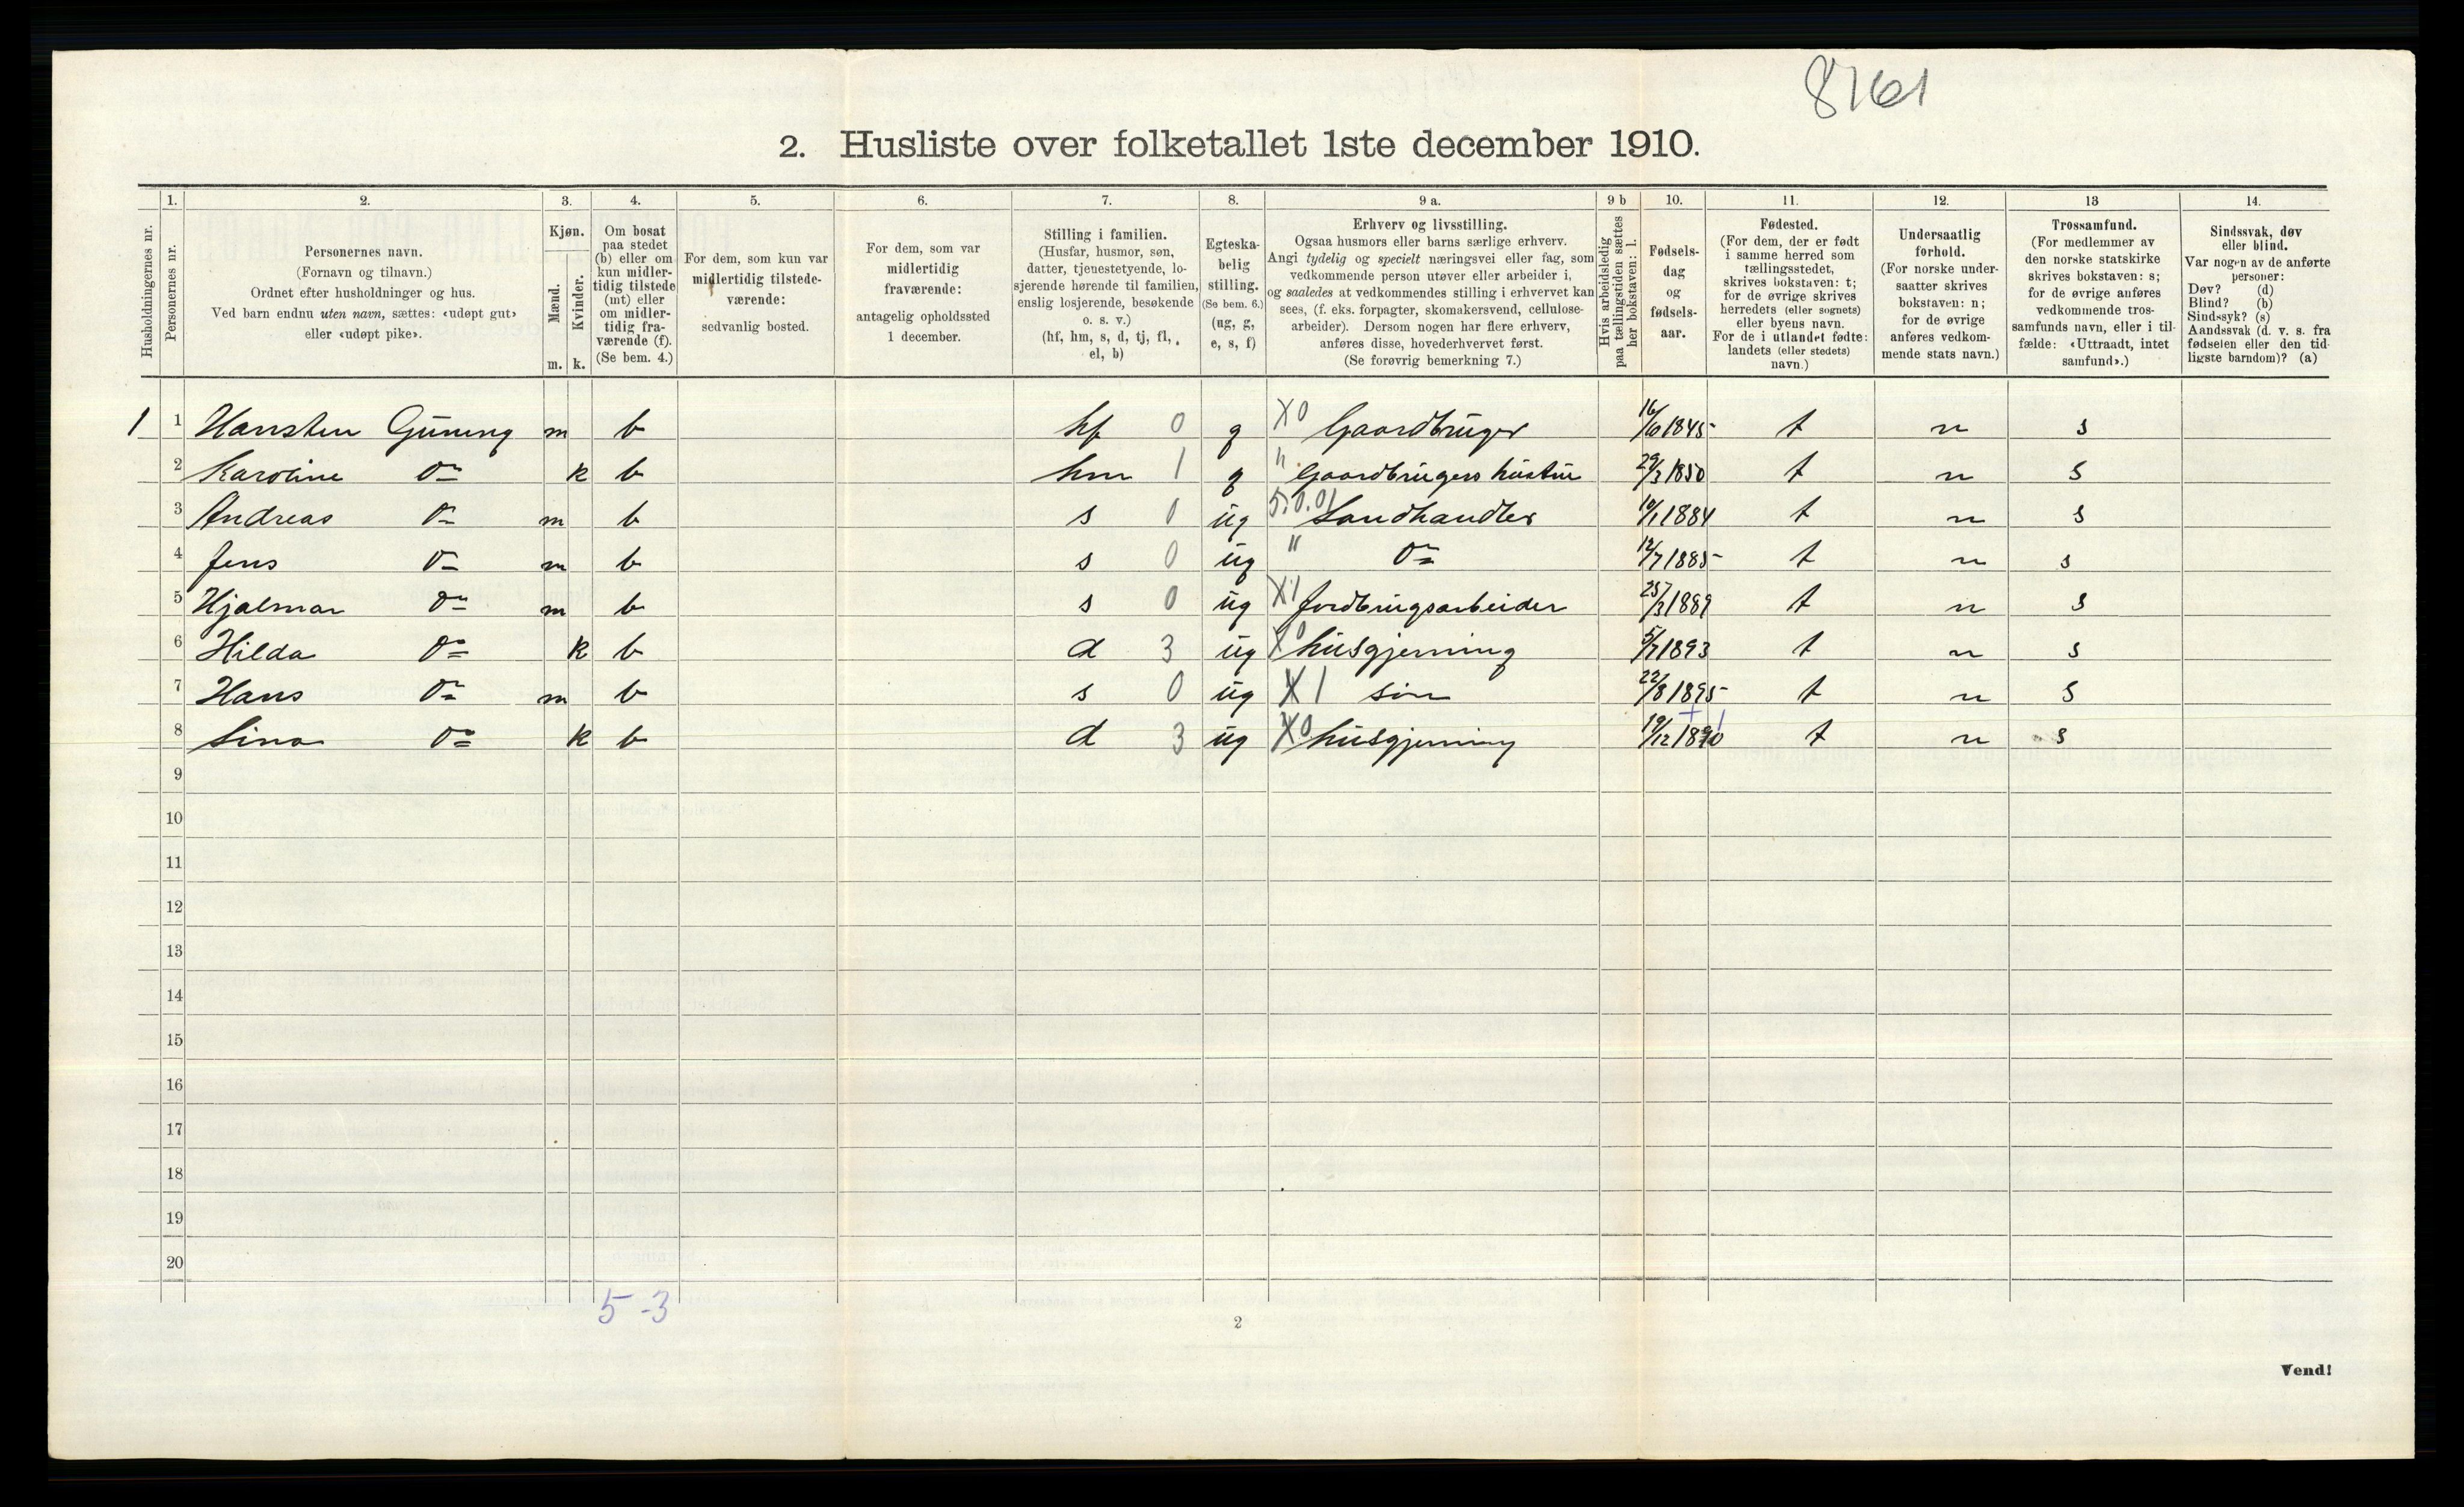 8161
2. Husliste over folketallet 1ste december 1910.
Husholdningernes nr.
1.
Personernes nr.
2.
Personernes navn.
(Fornavn og tilnavn.)
Ordnet efter husholdninger og hus.
Ved barn endnu uten navn, sættes: «udøpt gut»
eller «udøpt pike».
3.
Kjøn.
Mænd.
Kvinder.
m. k.
4.
Om bosat
paa stedet
(b) eller om
kun midler-
tidig tilstede
(mt) eller
om midler-
tidig fra-
værende (f).
(Se bem. 4.)
5.
For dem, som kun var
midlertidig tilstede-
værende:
sedvanlig bosted.
6.
For dem, som var
midlertidig
fraværende:
antagelig opholdssted
1 december.
7.
Stilling i familien.
(Husfar, husmor, søn,
datter, tjenestetyende, lo-
sjerende hørende til familien,
enslig losjerende, besøkende
o. s. v.)
(hf, hm, s, d, tj, fl,
el, b)
8.
Egteska-
belig
stilling.
(Se bem. 6.)
(ug, g,
e, s, f)
9 a.
Erhverv og livsstilling.
Ogsaa husmors eller barns særlige erhverv.
Angi tydelig og specielt næringsvei eller fag, som
vedkommende person utøver eller arbeider i,
og saaledes at vedkommendes stilling i erhvervet kan
sees, (f. eks. forpagter, skomakersvend, cellulose-
arbeider). Dersom nogen har flere erhverv,
anføres disse, hovederhvervet først.
(Se forøvrig bemerkning 7.)
9 b
Hvis arbeidsledig
paa tællingstiden sættes
her bokstaven: l.
10.
Fødsels-
dag
og
fødsels-
aar.
11.
Fødested.
(For dem, der er født
i samme herred som
tællingsstedet,
skrives bokstaven: t;
for de øvrige skrives
herredets (eller sognets)
eller byens navn.
For de i utlandet fødte:
landets (eller stedets)
navn.)
12.
Undersaatlig
forhold.
(For norske under-
saatter skrives
bokstaven: n;
for de øvrige
anføres vedkom-
mende stats navn.)
13
Trossamfund.
(For medlemmer av
den norske statskirke
skrives bokstaven: s;
for de øvrige anføres
vedkommende tros-
samfunds navn, eller i til-
fælde: «Uttraadt, intet
samfund».)
14.
Sindssvak, døv
eller blind.
Var nogen av de anførte
personer:
Døv? (d)
Blind? (b)
Sindssyk? (s)
Aandssvak (d. v. s. fra
fødselen eller den tid-
ligste barndom)? (a)
1 1 Hansten Guneng m b hf 0 g X0 Gaardbruger 16/10 1845 t n s
2 Karoline do k b hm 1 g " Gaardbrugers hustru 29/3 1850 t n s
3 Andreas do m b s 0 ug 5.0.01 Landhandler 10/1 1884 t n s
4 Jens do m b s 0 ug " do 12/7 1885 t n s
5 Hjalmar do m b s 0 ug X1 Jordbrugsarbeider 25/3 1889 t n s
6 Hilda do k b d 3 ug X0 husgjerning 5/7 1893 t n s
7 Hans do m b s 0 ug X1 søn 22/8 1895 t n s
8 Lina do k b d 3 ug X0 husgjerning 19/12 1890 t n s
9
10
11
12
13
14
15
16
17
18
19
20
5-3
2
Vend!